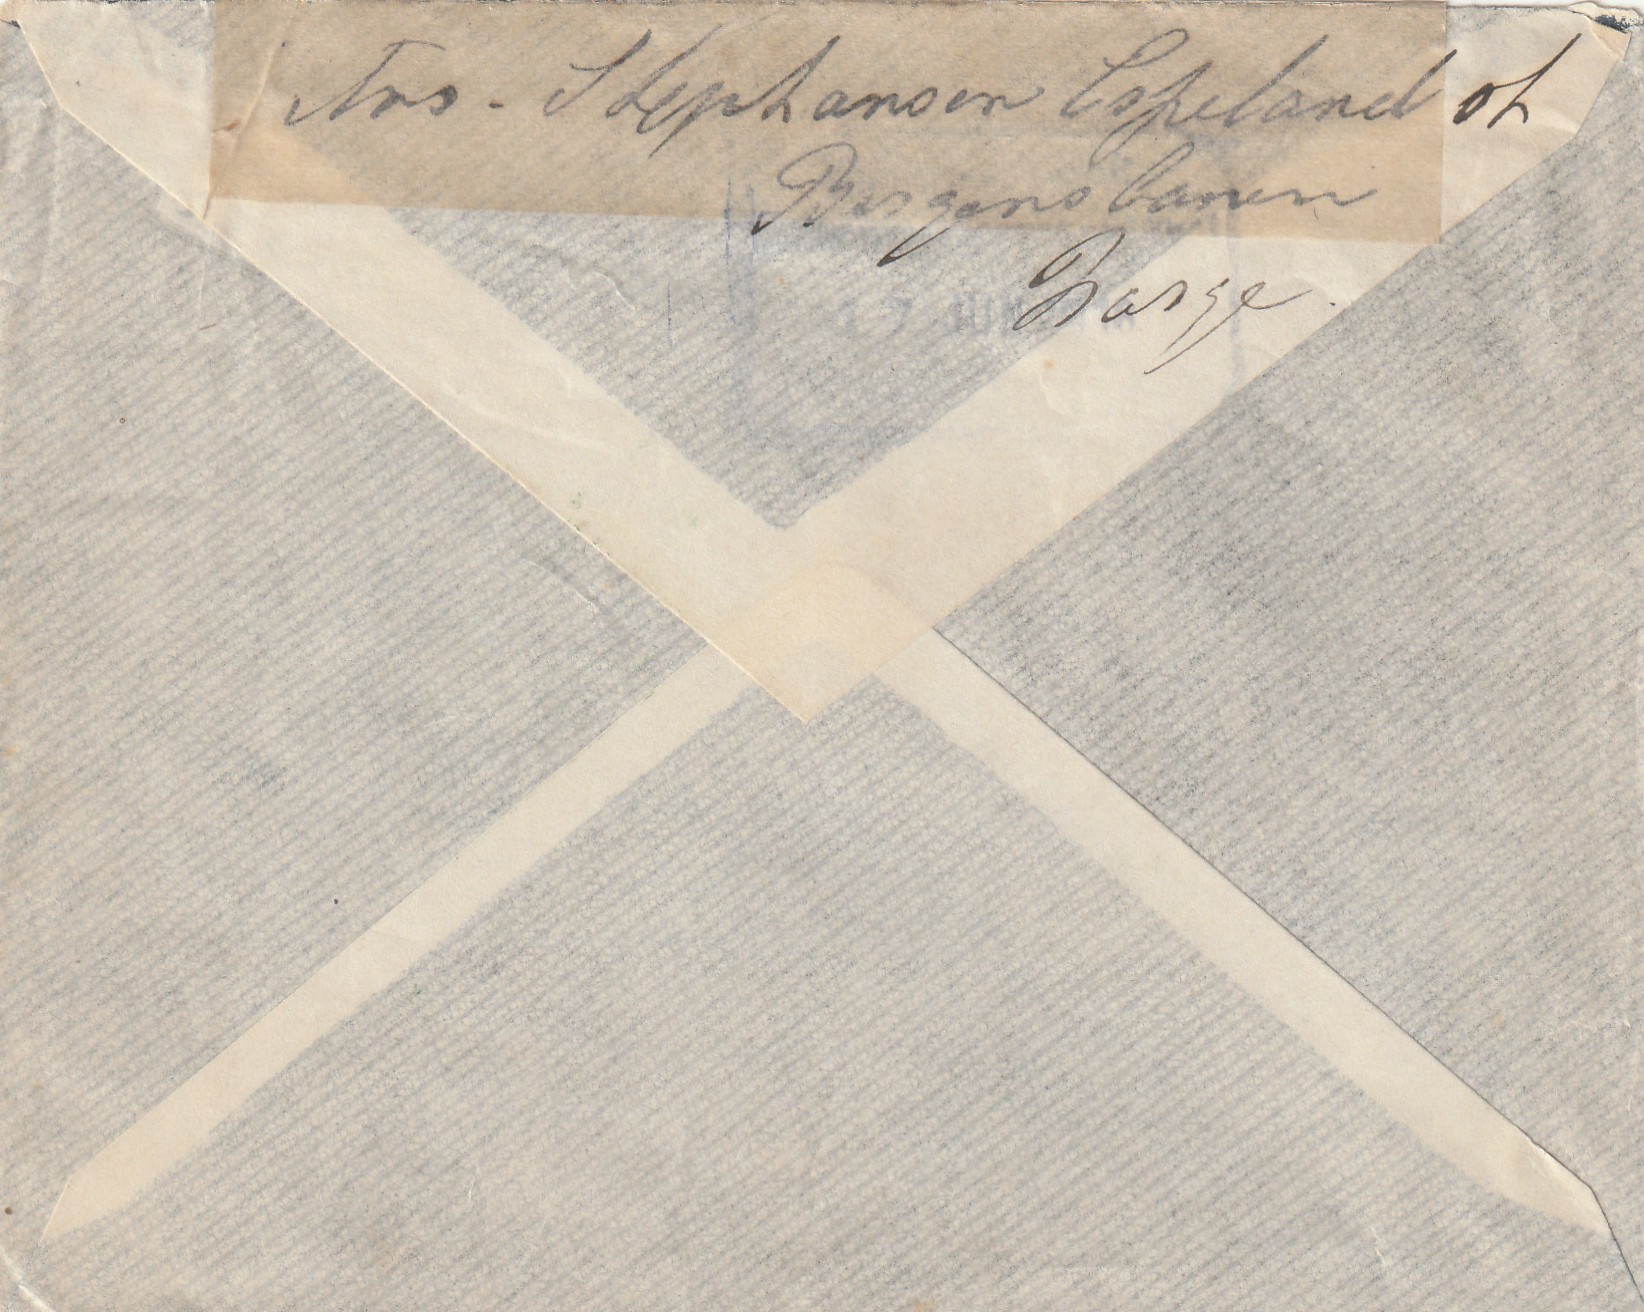 Avs - Stephansen Espeland st
Bergensbanen
Norge.
7 JUN